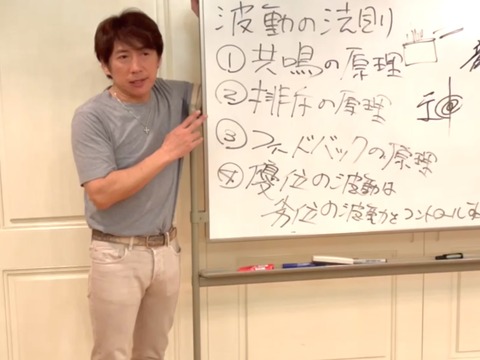 波動の法則
①共鳴の原理
②排斥の原理
③フィードバックの原理
④優位の波動は
劣位の波動をコントロールす